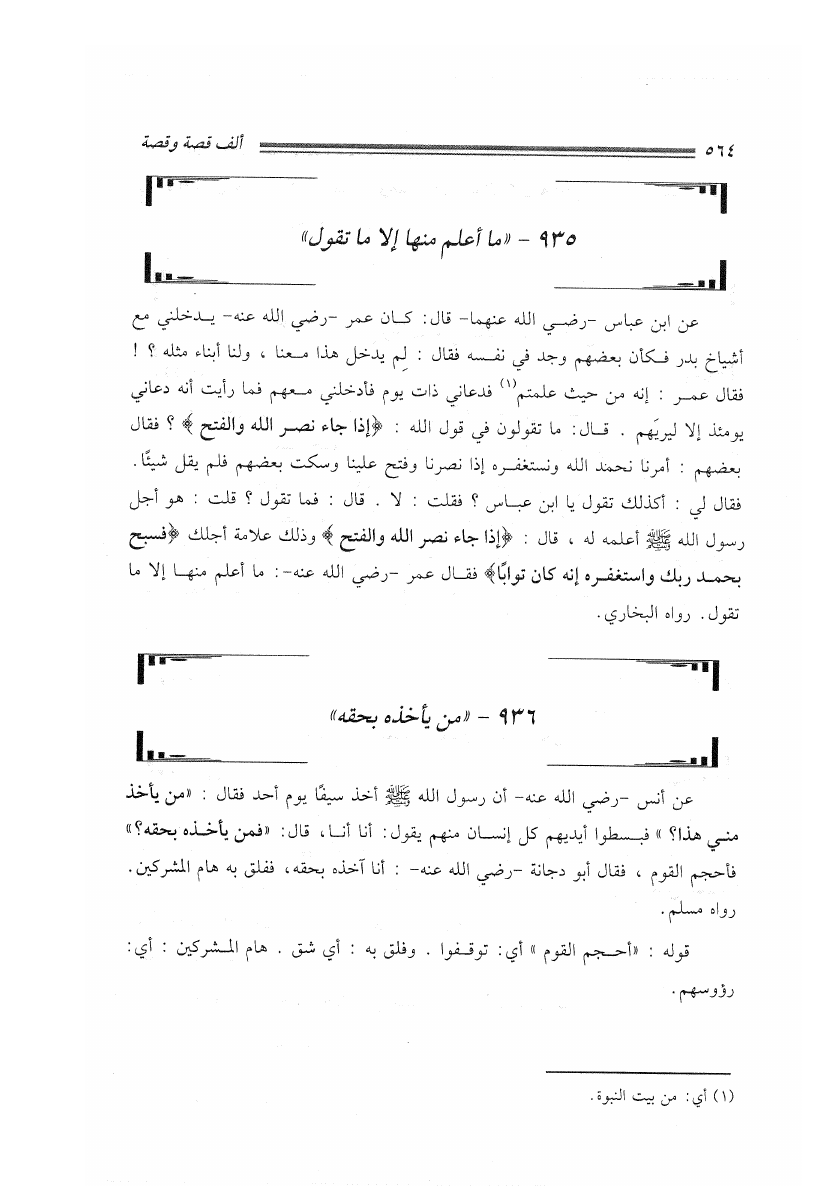 ٥٦٤ ألف قصة وقصة
٩٣٥ - «ما أعلم منها إلا ما تقول»
عن ابن عباس -رضي الله عنهما- قال: كان عمر -رضي الله عنه- يدخلني مع
أشياخ بدر فكأن بعضهم وجد في نفسه فقال : لِم يدخل هذا معنا ، ولنا أبناء مثله ؟ !
فقال عمر : إنه من حيث علمتم(١) فدعاني ذات يوم فأدخلني معهم فما رأيت أنه دعاني
يومئذ إلا ليريَهم . قال: ما تقولون في قول الله : ﴿إذا جاء نصر الله والفتح ﴾ ؟ فقال
بعضهم : أمرنا نحمد الله ونستغفره إذا نصرنا وفتح علينا وسكت بعضهم فلم يقل شيئًا.
فقال لي : أكذلك تقول يا ابن عباس ؟ فقلت : لا . قال : فما تقول ؟ قلت : هو أجل
رسول الله ﷺ أعلمه له ، قال : ﴿إذا جاء نصر الله والفتح ﴾ وذلك علامة أجلك ﴿فسبح
بحمد ربك واستغفره إنه كان توابًا﴾ فقال عمر -رضي الله عنه-: ما أعلم منها إلا ما
تقول. رواه البخاري.
٩٣٦ - «من يأخذه بحقه»
عن أنس -رضي الله عنه- أن رسول الله ﷺ أخذ سيفًا يوم أحد فقال : «من يأخذ
مني هذا؟ » فبسطوا أيديهم كل إنسان منهم يقول: أنا أنا، قال: «فمن يأخذه بحقه؟»
فأحجم القوم ، فقال أبو دجانة -رضي الله عنه- : أنا آخذه بحقه، ففلق به هام المشركين.
رواه مسلم.
قوله : «أحجم القوم » أي: توقفوا . وفلق به : أي شق . هام المشركين : أي:
رؤوسهم.
(١) أي: من بيت النبوة.